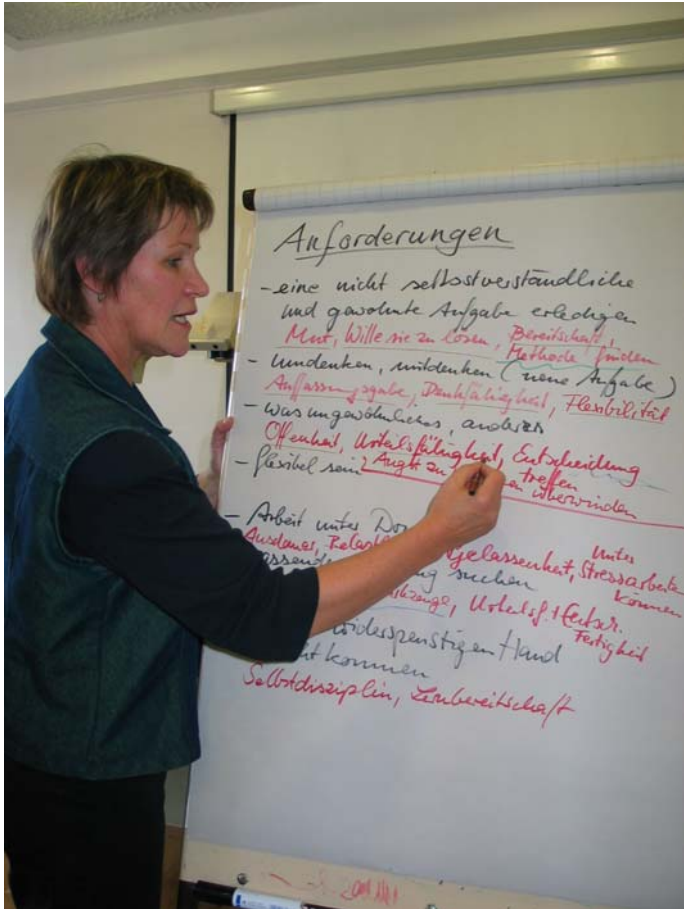 Anforderungen
- eine nicht selbstverständliche
und gewohnte Aufgabe erledigen
Mut, Wille sie zu lösen, Bereitschaft,
Methode finden
- umdenken, mitdenken (neue Aufgabe)
Auffassungsgabe, Denkfähigkeit, Flexibilität
- was ungewöhnliches, anderes
Offenheit, Urteilsfähigkeit, Entscheidung
treffen
- flexibel sein Angst zu überwinden
- Arbeit unter
Ausdauer, Gelassenheit, Unter
Stressarbeiten
können
suchen
Urteilsf. + Entscr.
Fertigkeit
widerspenstigen Hand
kommen
Selbstdisziplin, Lernbereitschaft